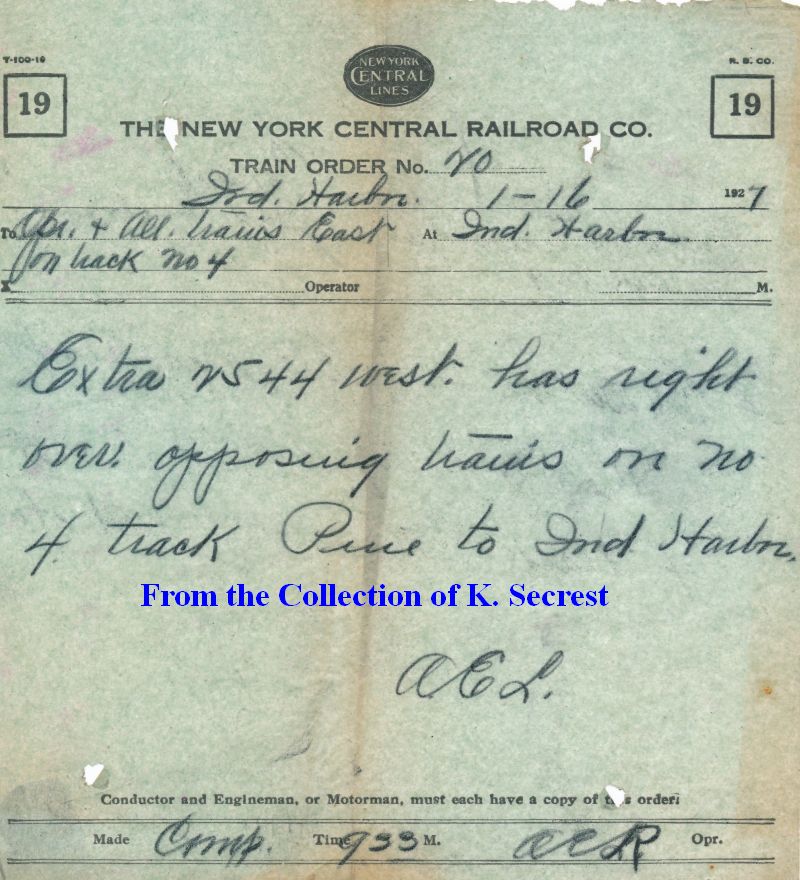 T-100-19
R. B. CO.
NEW YORK
CENTRAL
LINES
19
19
THE NEW YORK CENTRAL RAILROAD CO.
TRAIN ORDER No. 20
Ind. Harbor. 1-16 1927
To Opr. + All. trains East At Ind. Harbor
on track no 4
X Operator M.
Extra 2544 west. has right
over. opposing trains on no
4 track Pine to Ind Harbor.
From the Collection of K. Secrest
A.E.L.
Conductor and Engineman, or Motorman, must each have a copy of this order.
Made Comp. Time 933 M. Opr.